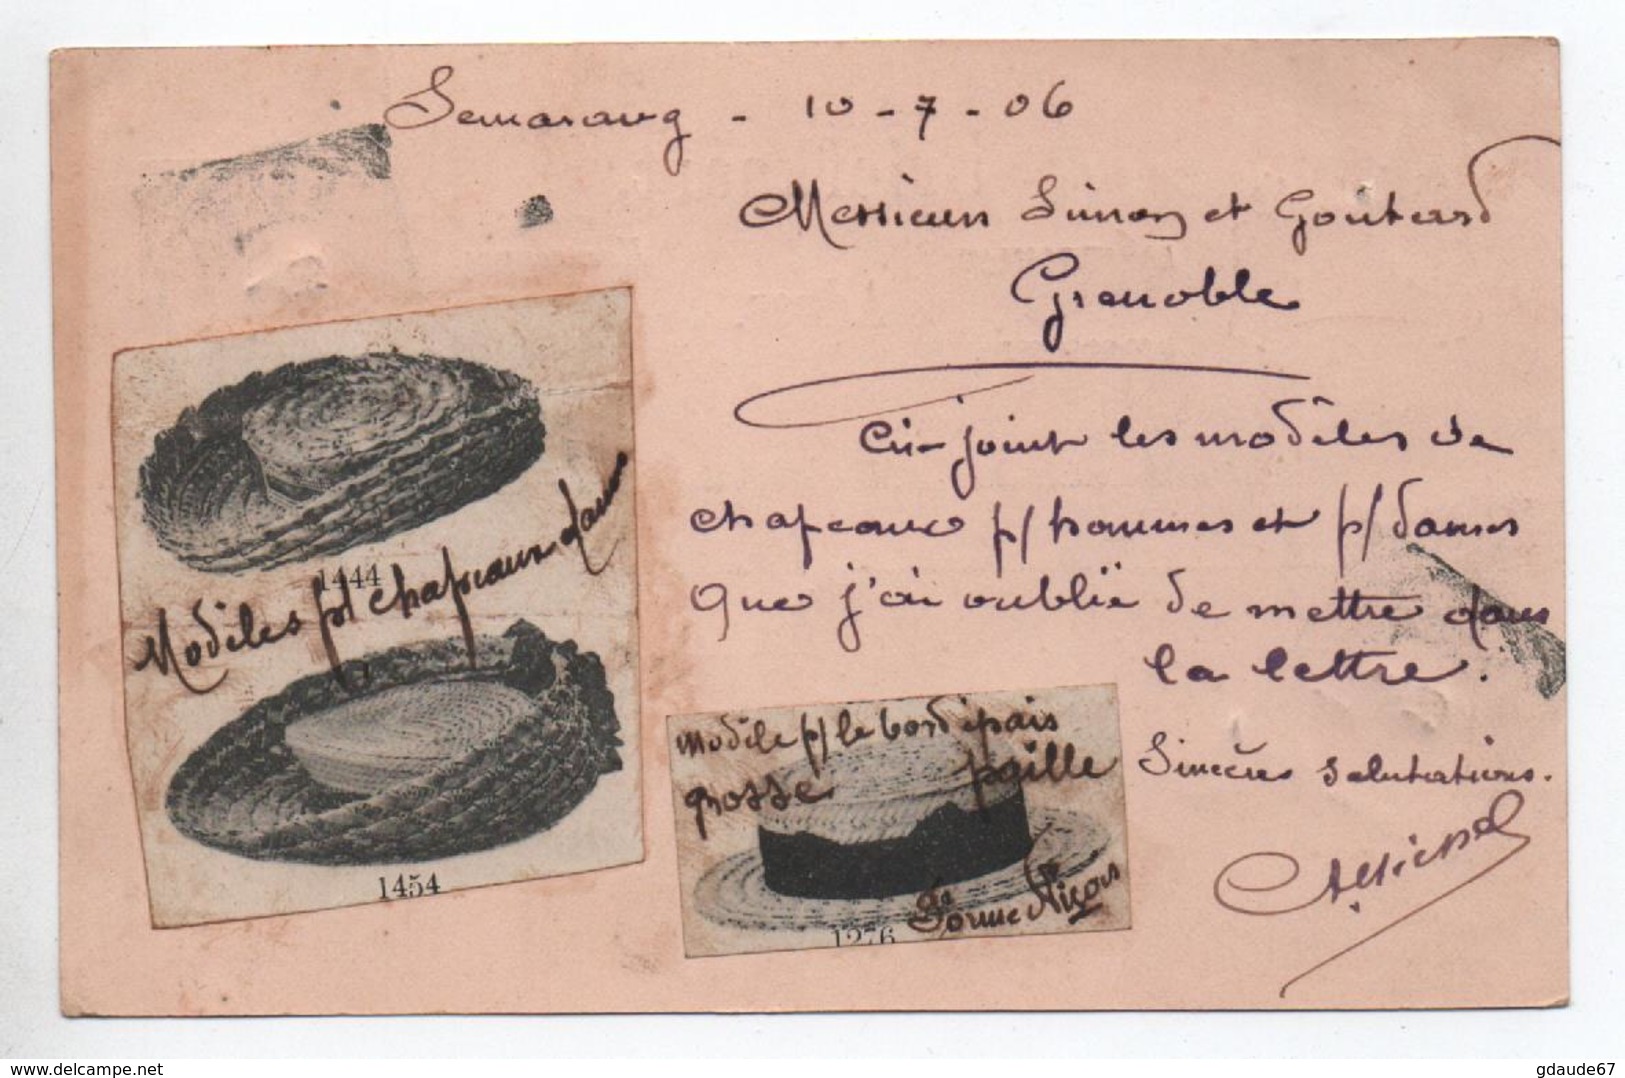 Semarang - 10 - 7 - 06
Messieurs Simon et Goutard
Grenoble
Ci-joint les modèles de
chapeaux p/ hommes et p/ dames
que j'ai oublié de mettre dans
la lettre.
Sincères salutations.
1444
Modèles p/ chapeaux dames
1454
Modèle p/ le bord épais
grosse paille
Forme Niçois
1276
delcampe.net
gdaude67